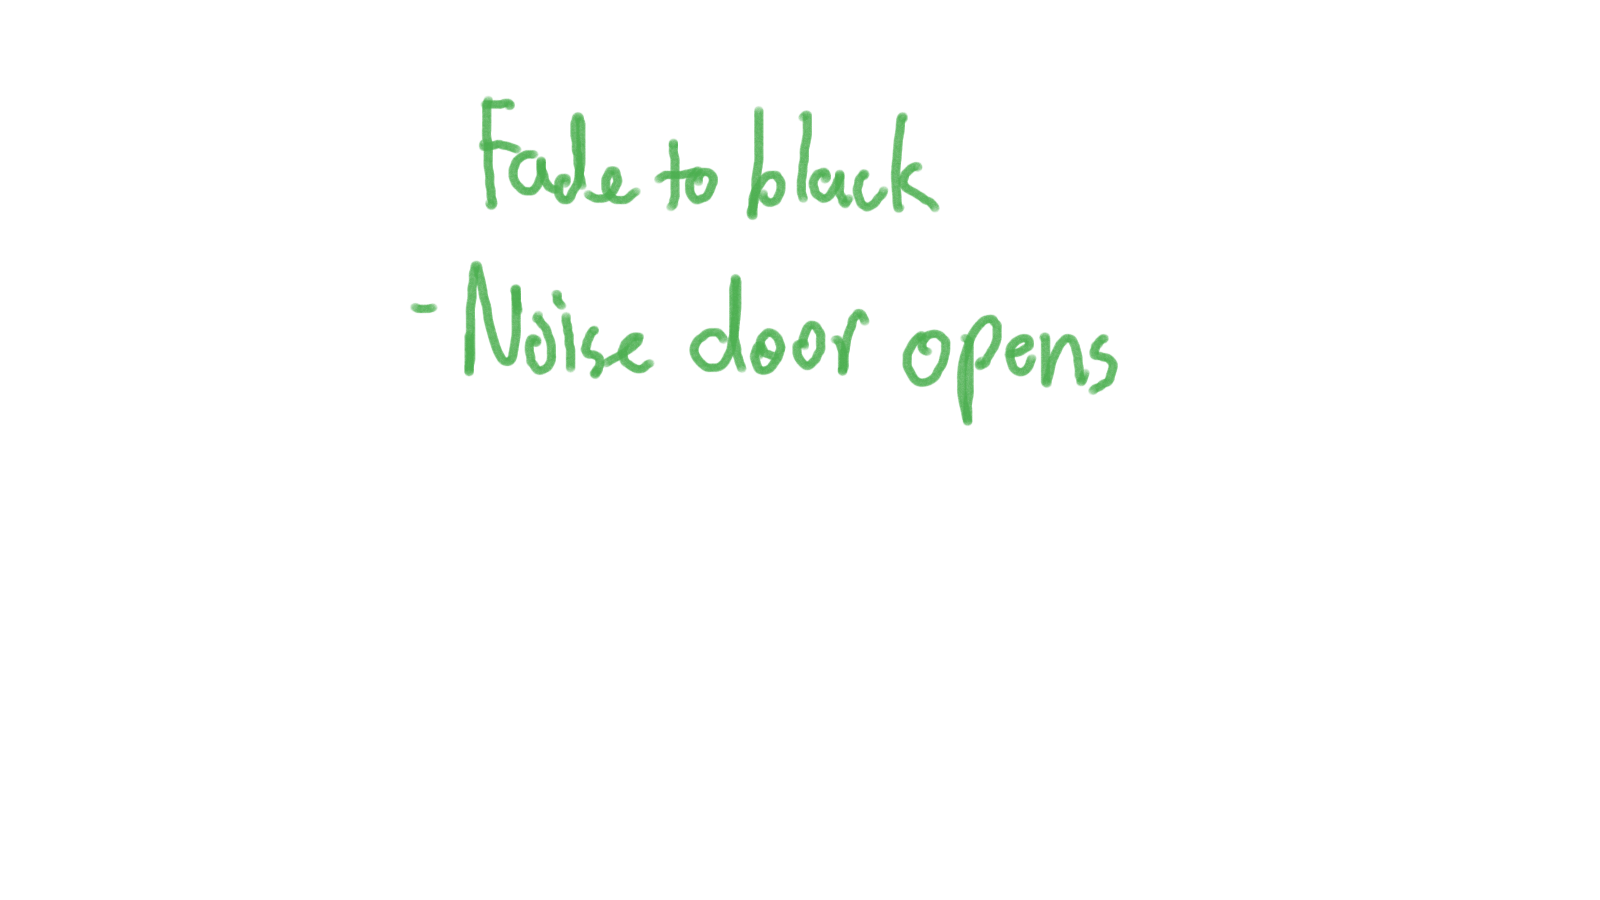 Fade to black
- Noise door opens